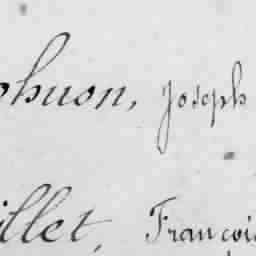 ohuon, Joseph
illet, François